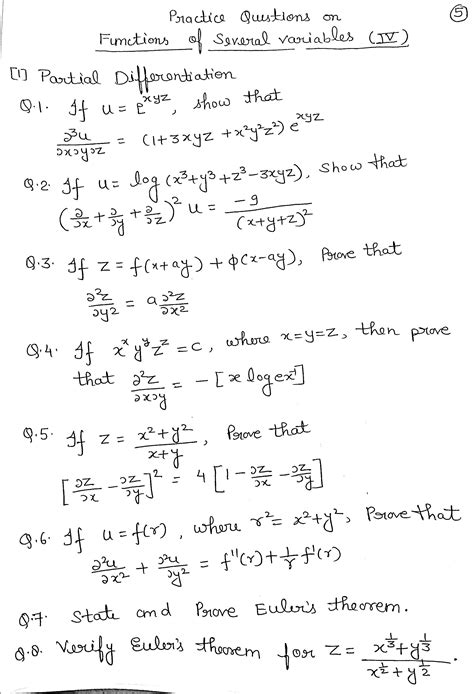 Practice Questions on
⑤
Functions of Several variables (IV)
[1] Partial Differentiation
Q.1. If u = e^{xyz}, show that
∂³u/∂x∂y∂z = (1+3xyz+x²y²z²) e^{xyz}
Q.2. If u = log(x³+y³+z³-3xyz), show that
(∂/∂x + ∂/∂y + ∂/∂z)² u = -9/(x+y+z)²
Q.3. If z = f(x+ay) + φ(x-ay), Prove that
∂²z/∂y² = a ∂²z/∂x²
Q.4. If x^x y^y z^z = c, where x=y=z, then prove
that ∂²z/∂x∂y = -[x log ex]^{-1}
Q.5. If z = x²+y²/x+y, Prove that
[∂z/∂x - ∂z/∂y]² = 4[1 - ∂z/∂x - ∂z/∂y]
Q.6. If u = f(r), where r² = x²+y², Prove that
∂²u/∂x² + ∂²u/∂y² = f''(r) + 1/r f'(r)
Q.7. State and Prove Euler's theorem.
Q.8. Verify Euler's theorem for z = x^{1/3}+y^{1/3}/x^{1/2}+y^{1/2}.